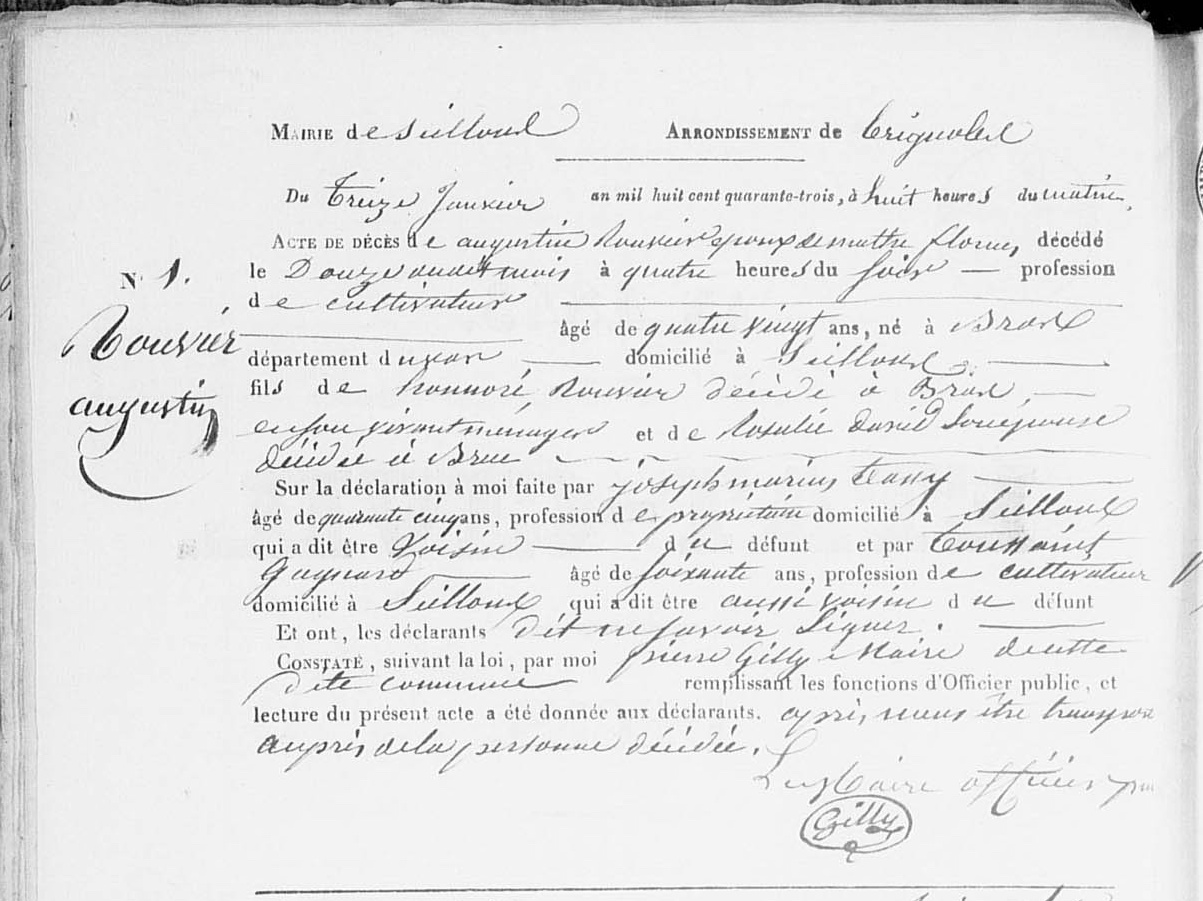 MAIRIE de Seillons ARRONDISSEMENT de Brignoles
Du Treize Janvier an mil huit cent quarante-trois, à huit heures du matin,
ACTE DE DÉCÈS de augustin Rouvier epoux de marthe florens, décédé
N° 1. le Douze dudit mois à quatre heures du soir — profession
de cultivateur
Rouvier
augustin
âgé de quatre vingt ans, né à Brue
département du var domicilié à Seillons
fils de honnoré Rouvier décédé à Brue,
enson vivant ménager et de Rosalie David son épouse
décédée à Brue
Sur la déclaration à moi faite par joseph marius
âgé de quarante cinq ans, profession de propriétaire domicilié à Seillons
qui a dit être Voisin du défunt et par Toussaint
âgé de soixante ans, profession de cultivateur
domicilié à Seillons qui a dit être aussi voisin du défunt
Et ont, les déclarants dit ne savoir signer.
CONSTATÉ, suivant la loi, par moi pierre Gilly Maire decette
dite commune remplissant les fonctions d'Officier public, et
lecture du présent acte a été donnée aux déclarants. après, nous être transporté
auprès dela personne décédée.
Le Maire officier
Gilly